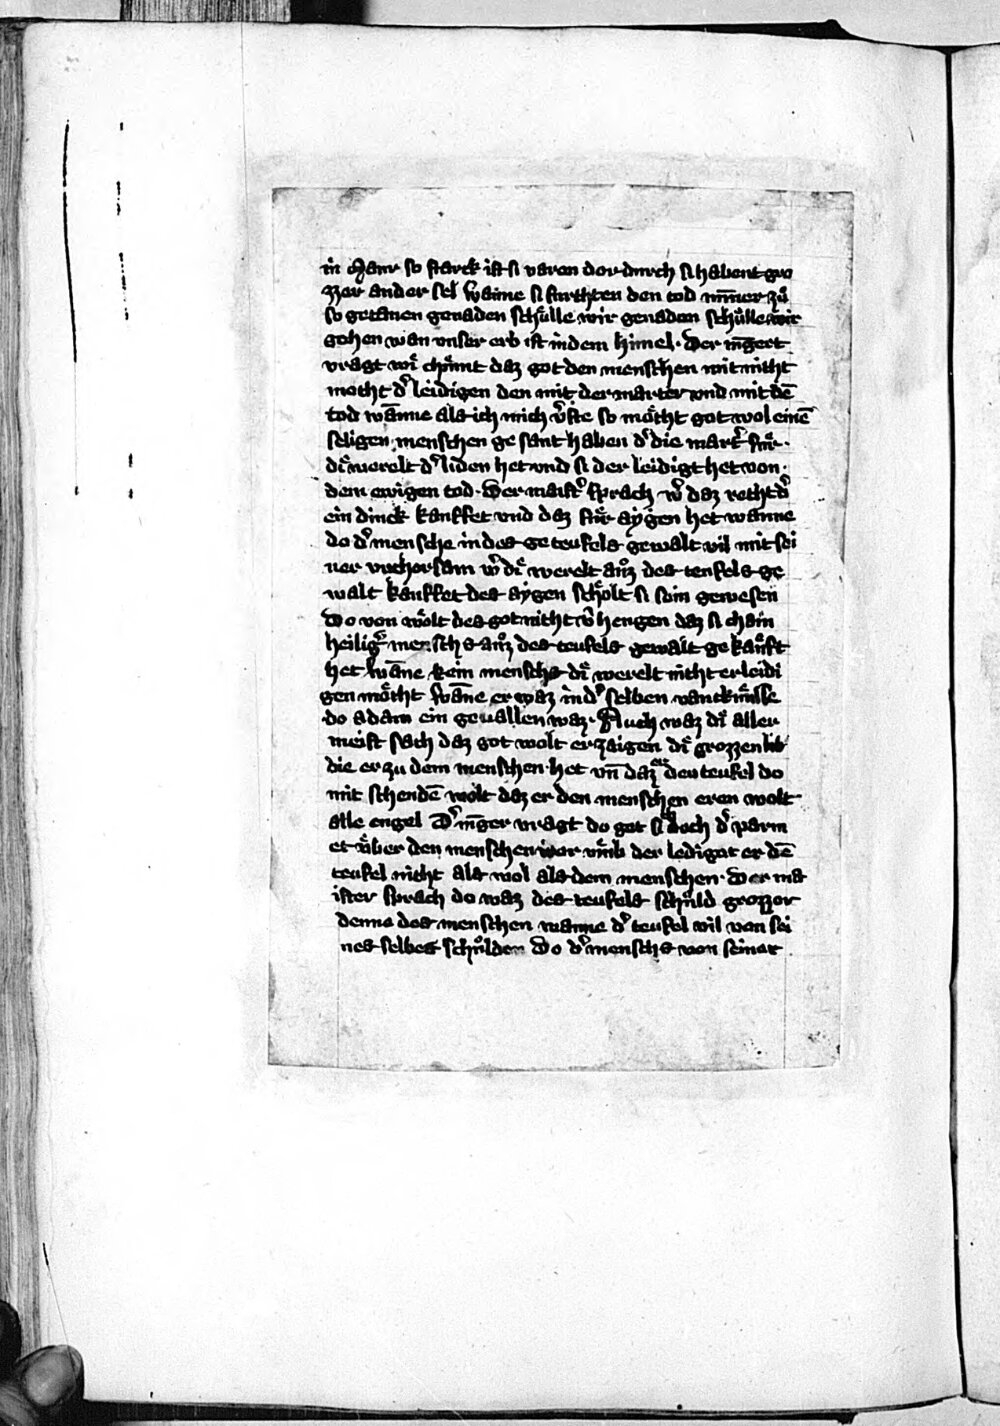 in Maur so starck ist si varen dor durch si habent gro
zzer ander sel wanne si furchten den tod nimmer zů
so getanen genaden schůlle wir genaden schůlle wir
gehen wan vnser erb ist in dem himel · Der iūger
vragt wi͛ chu͛mt daz got den menschen mit nicht
mocht d͛ leidigen den mit der marter vnd mit dē
tod wāne als ich mich v͛ste so mo͛cht got wol einē
seligen menschen ge sant haben d͛ die mart͛ fu͛r
di͛ werelt d͛ liden het vnd si der leidigt het von
dem ewigen tod · Der maist͛ sprach w͛ daz recht d͛
ein dinck kauffet vnd daz fu͛r aygen het wanne
do d͛ mensche in des ge teufels gewalt vil mit sei
ner vnchorsam w͛ di͛ werelt auz des teufels ge
walt kauffet des aygen scholt si sein gewesen
Do von wolt des got nicht v͛hengen daz si chain
heilig͛ mensche auz des teufels gewalt ge kauft
het wāne kein mensche di͛ werelt nicht erleidi
gen mo͛cht wāne er waz in d͛ selben vanckni͛sse
do adam ein gevallen waz · Auch waz di͛ aller
meist sach daz got wolt erzaigen di͛ grozzen lib
die er zu dem menschen het vn̄ daz er den teufel do
mit schendē wolt daz er den menschen eren wolt
alle engel D͛ iūger vragt do got si doch d͛ parm
et u͛ber den menschen war vmb der ledigot er dē
teufel nicht als wol als dem menschen · Der ma
ister sprach do waz des teufels schůld grozzer
denne des menschen wanne d͛ teufel vil von sei
nes selbes schůlden Do d͛ mensche von seiner